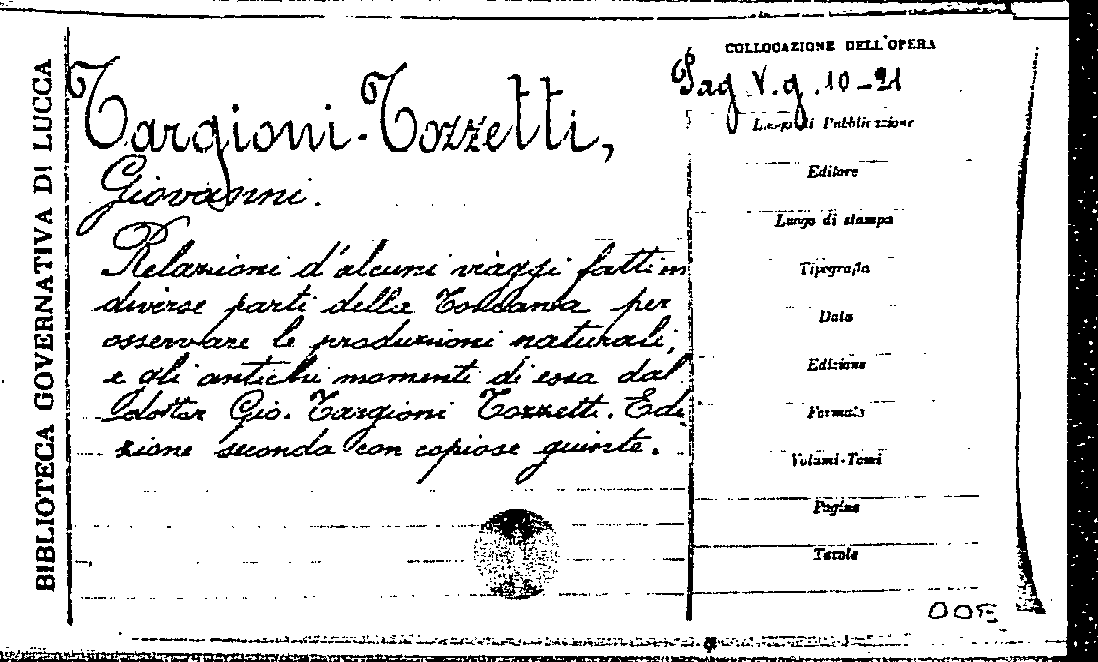 BIBLIOTECA GOVERNATIVA DI LUCCA
Targioni-Tozzetti,
Giovanni.
Relazioni d'alcuni viaggi fatti in
diverse parti della Toscana per
osservare le produzioni naturali,
e gli antichi momenti di essa dal
dottor Gio. Targioni Tozzetti. Edi
zione seconda con copiose giunte.
COLLOCAZIONE DELL'OPERA
Pag V. g. 10-21
Luogo di Pubblicazione
Editore
Luogo di stampa
Tipografia
Data
Edizione
Formato
Volumi-Tomi
Pagine
Tavole